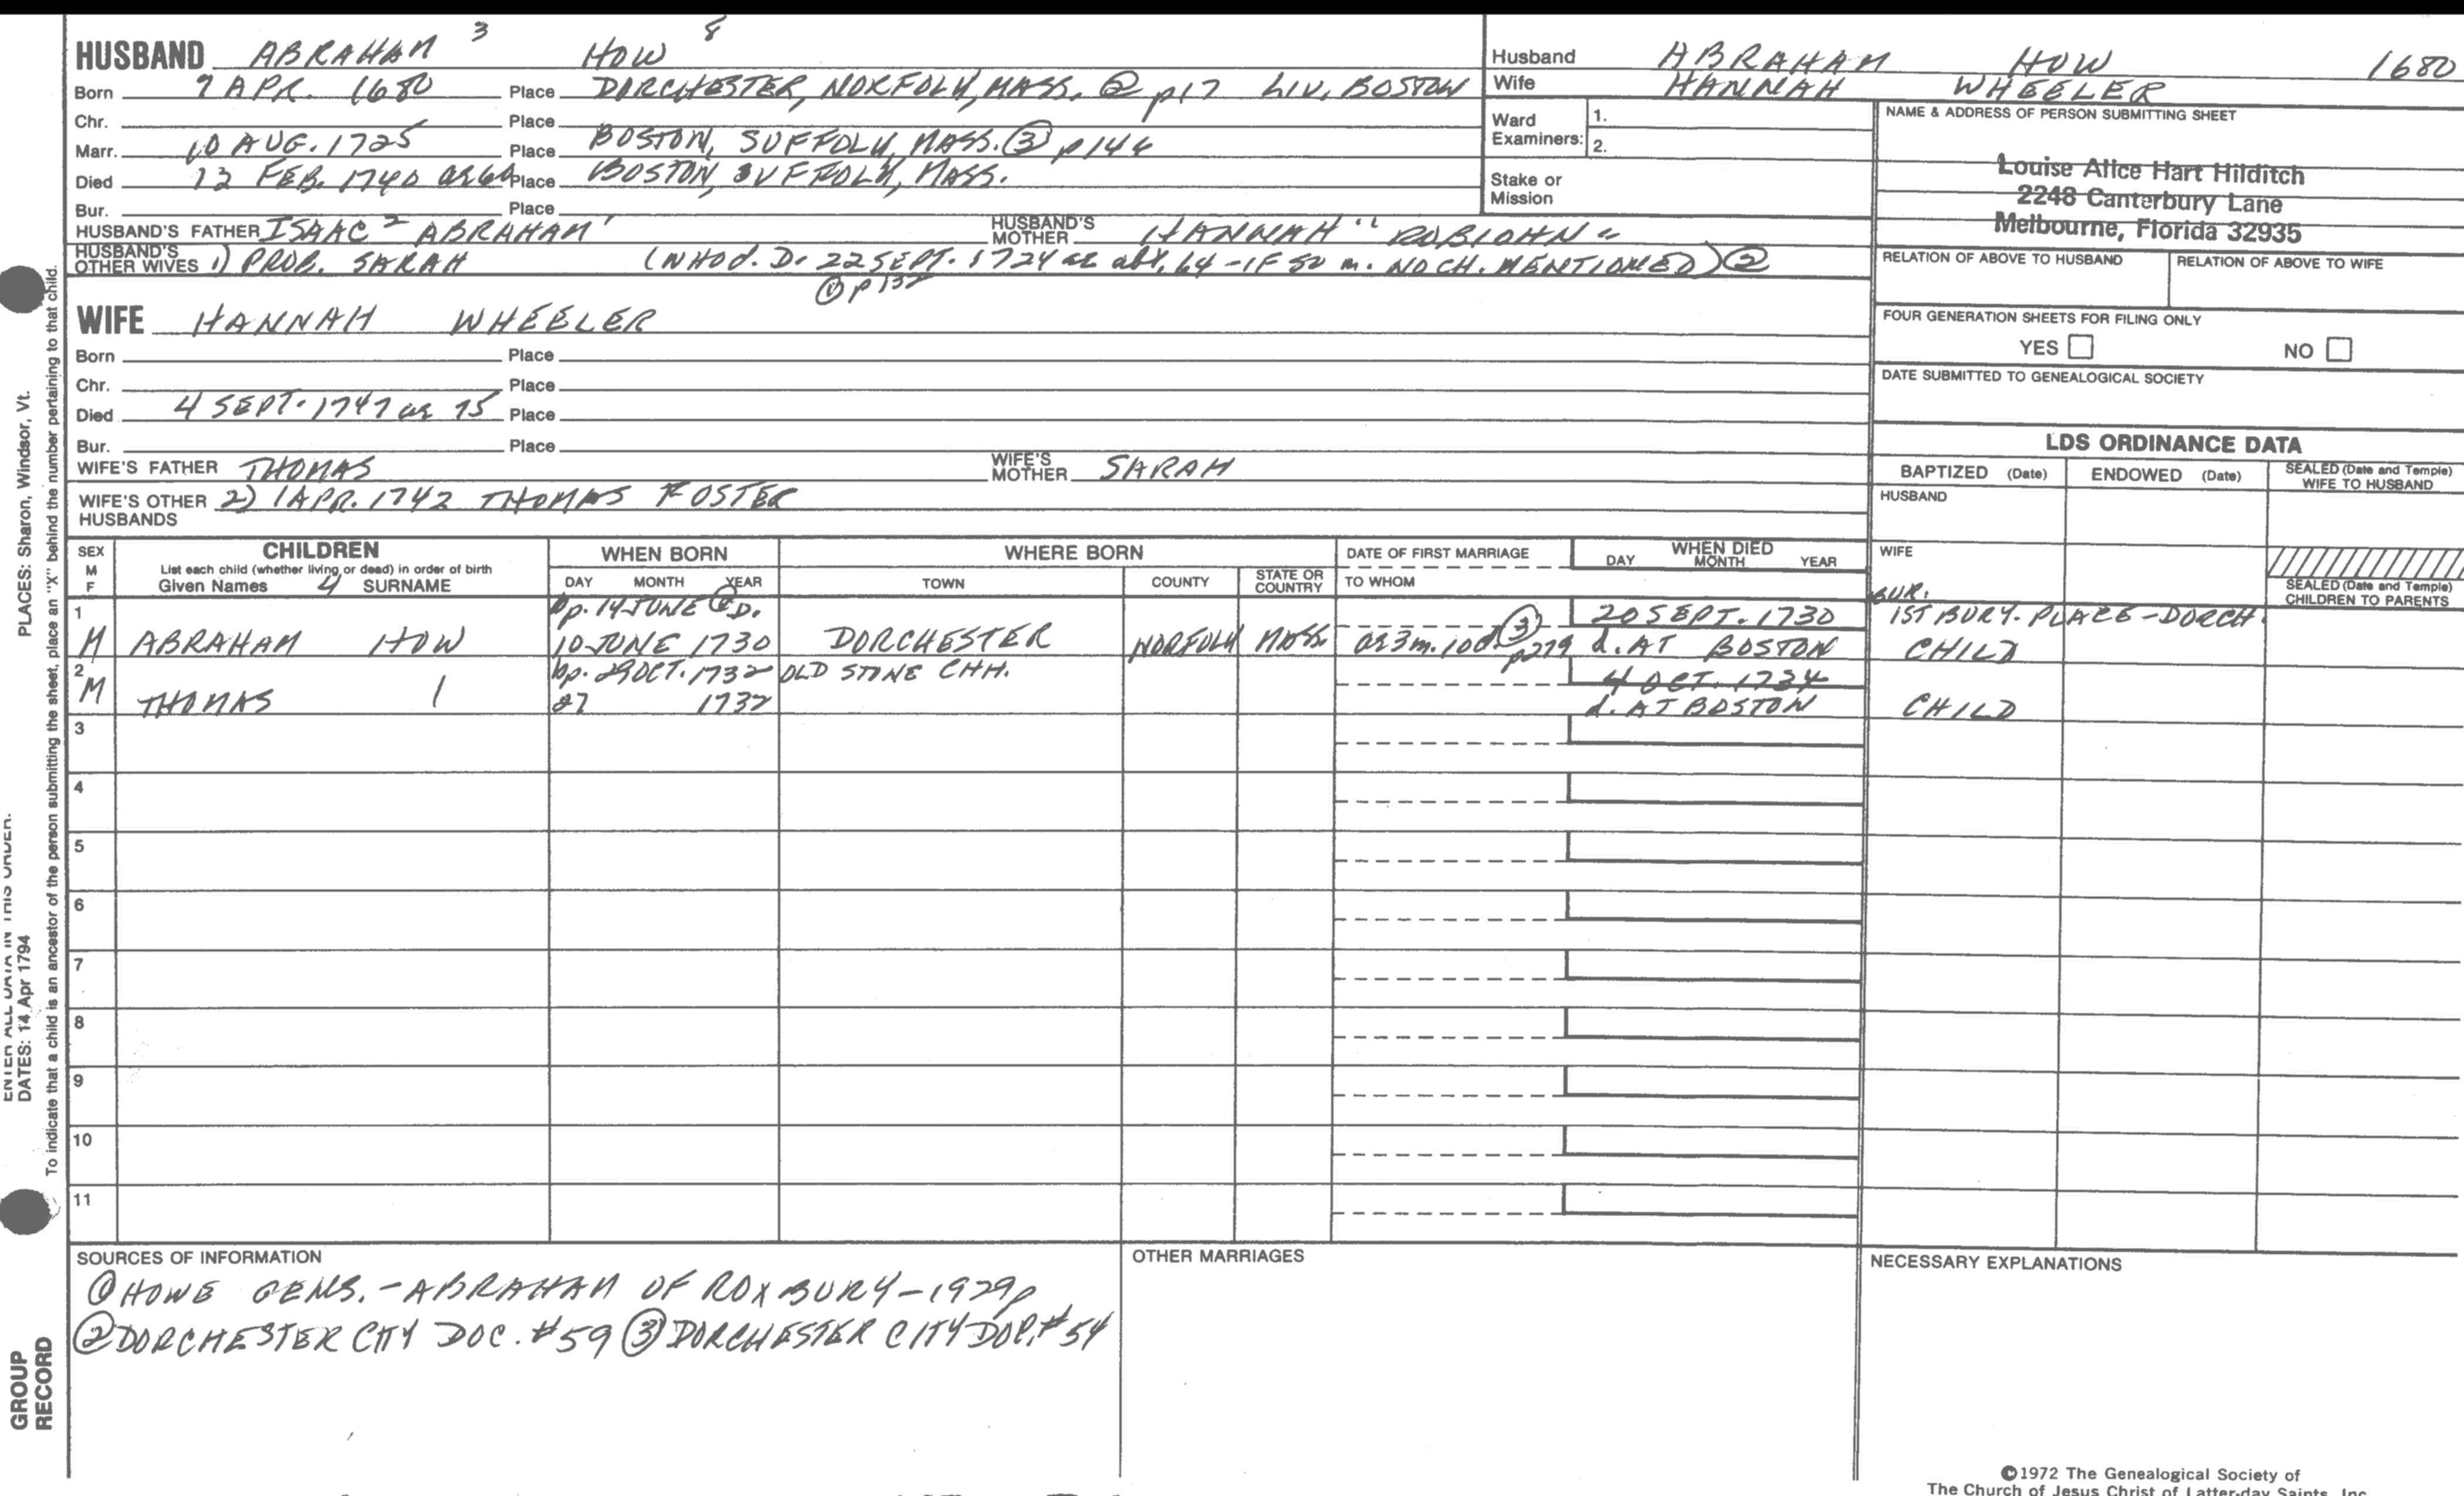 HUSBAND ABRAHAM 3 HOW 8
Born 7 APR. 1680 Place DORCHESTER, NORFOLK, MASS. ② p17 LIV. BOSTON
Chr. Place
Marr. 10 AUG. 1725 Place BOSTON, SUFFOLK, MASS. ③ p146
Died 12 FEB. 1740 ae 60 Place BOSTON, SUFFOLK, MASS.
Bur. Place
HUSBAND'S FATHER ISAAC 2 ABRAHAM 1 HUSBAND'S MOTHER HANNAH "ROBIOHN"
HUSBAND'S OTHER WIVES 1) PROB. SARAH (WHO d. D. 22 SEPT. 1724 ae abt. 64 - IF SO m. NO CH. MENTIONED) ②
① p 132
WIFE HANNAH WHEELER
Born Place
Chr. Place
Died 4 SEPT. 1747 ae 75 Place
Bur. Place
WIFE'S FATHER THOMAS WIFE'S MOTHER SARAH
WIFE'S OTHER HUSBANDS 2) 1 APR. 1742 THOMAS FOSTER
Husband ABRAHAM HOW 1680
Wife HANNAH WHEELER
Ward Examiners: 1.
2.
Stake or Mission
NAME & ADDRESS OF PERSON SUBMITTING SHEET
Louise Alice Hart Hilditch
2248 Canterbury Lane
Melbourne, Florida 32935
RELATION OF ABOVE TO HUSBAND RELATION OF ABOVE TO WIFE
FOUR GENERATION SHEETS FOR FILING ONLY
YES NO
DATE SUBMITTED TO GENEALOGICAL SOCIETY
LDS ORDINANCE DATA
BAPTIZED (Date) ENDOWED (Date) SEALED (Date and Temple) WIFE TO HUSBAND
HUSBAND
WIFE
SEALED (Date and Temple) CHILDREN TO PARENTS
SEX M F CHILDREN WHEN BORN WHERE BORN DATE OF FIRST MARRIAGE WHEN DIED
List each child (whether living or dead) in order of birth
Given Names 4 SURNAME DAY MONTH YEAR TOWN COUNTY STATE OR COUNTRY TO WHOM DAY MONTH YEAR
1 bp. 14 JUNE @ D. 20 SEPT. 1730 BUR. 1ST BURY. PLACE - DORCH.
M ABRAHAM HOW 10 JUNE 1730 DORCHESTER NORFOLK MASS. ae 3m. 10d ③ p279 d. AT BOSTON CHILD
2 bp. 29 OCT. 1732 OLD STONE CHH. 4 OCT. 1734
M THOMAS 27 1732 d. AT BOSTON CHILD
3
4
5
6
7
8
9
10
11
SOURCES OF INFORMATION
① HOWE GENS. - ABRAHAM OF ROXBURY - 1929 p
② DORCHESTER CITY DOC. #59 ③ DORCHESTER CITY DOC. #54
OTHER MARRIAGES
NECESSARY EXPLANATIONS
©1972 The Genealogical Society of
The Church of Jesus Christ of Latter-day Saints, Inc.
To indicate that a child is an ancestor of the person submitting the sheet, place an "X" behind the number pertaining to that child.
PLACES: Sharon, Windsor, Vt.
ENTER ALL DATA IN THIS ORDER:
DATES: 14 Apr 1794
GROUP
RECORD